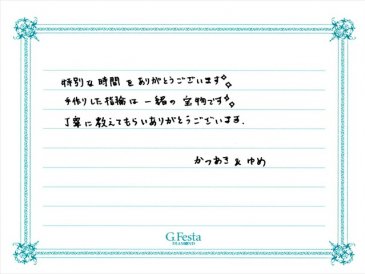 特別な時間をありがとうございます✨
手作りした指輪は一緒の宝物です✨
丁寧に教えてもらいありがとうございます.
かつあき & ゆめ
G.Festa
DIAMOND